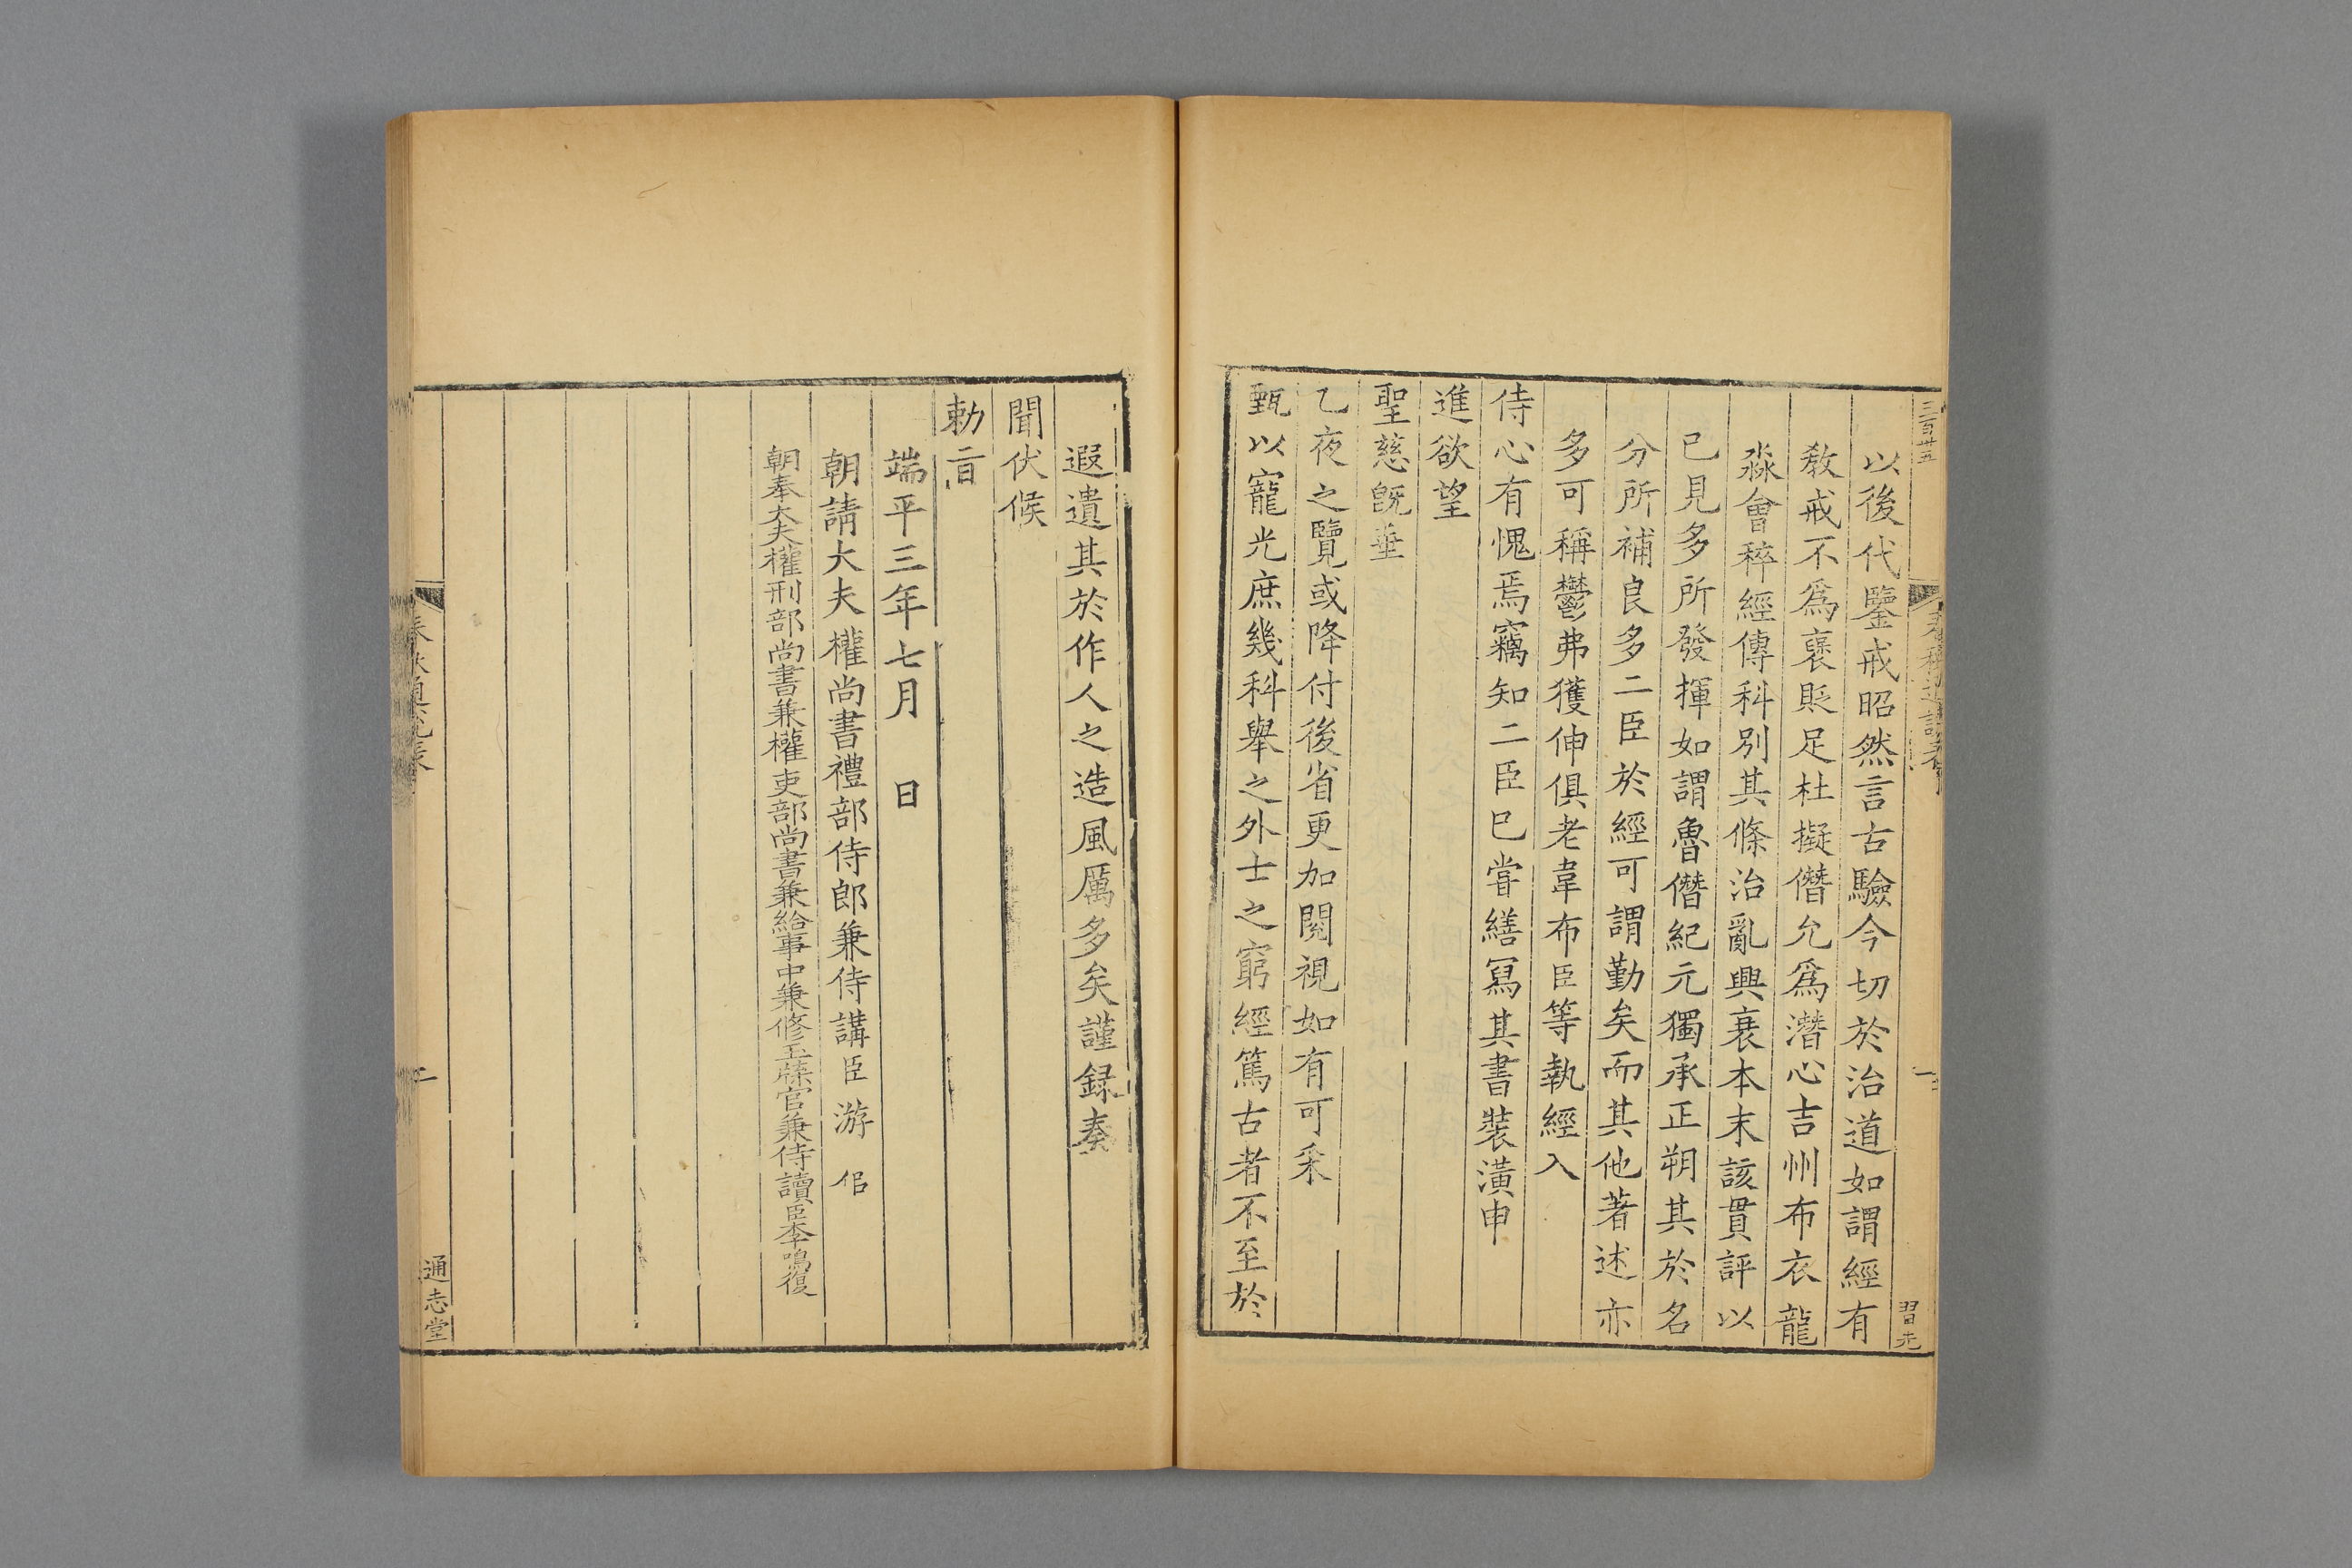 三百廿五
習先
以後代鑒戒昭然言古驗今切於治道如謂經有
教戒不爲襃貶足杜擬僭允爲潛心吉州布衣龍
淼會稡經傳科別其條治亂興衰本末該貫評以
已見多所發揮如謂魯僭紀元獨承正朔其於名
分所補良多二臣於經可謂勤矣而其他著述亦
多可稱鬱弗獲伸俱老韋布臣等執經入
侍心有愧焉竊知二臣巳甞繕冩其書裝潢申
進欲望
聖慈旣垂
乙夜之覽或降付後省更加閱視如有可采
甄以寵光庶幾科舉之外士之窮經篤古者不至於
遐遺其於作人之造風厲多矣謹録奏
聞伏候
勅㫖
端平三年七月 日
朝請大夫權尚書禮部侍郎兼侍講臣游 佀
朝奉大夫權刑部尚書兼權吏部尚書兼給事中兼修玉牒官兼侍讀臣李鳴復
二
通志堂